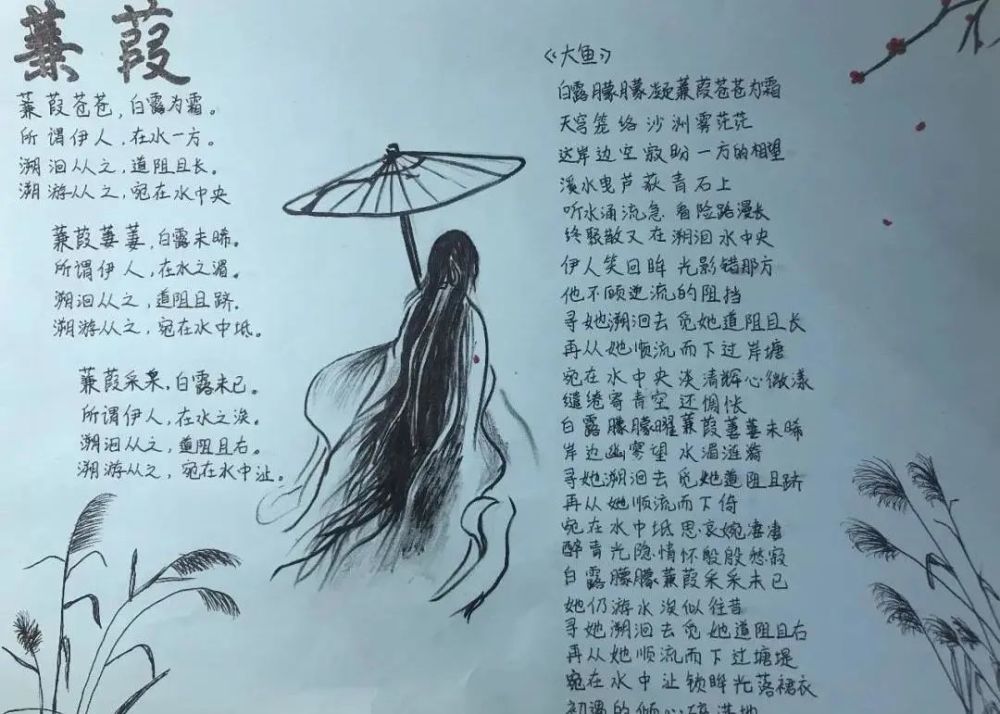 蒹葭
蒹葭苍苍，白露为霜。
所谓伊人，在水一方。
溯洄从之，道阻且长。
溯游从之，宛在水中央
蒹葭萋萋，白露未晞。
所谓伊人，在水之湄。
溯洄从之，道阻且跻.
溯游从之，宛在水中坻。
蒹葭采采，白露未已。
所谓伊人，在水之涘。
溯洄从之，道阻且右。
溯游从之，宛在水中沚。
《大鱼》
白露朦朦凝蒹葭苍苍为霜
天穹笼络沙洲雾茫茫
这岸边空寂盼一方的相望
溪水曳芦荻青石上
听水涌流急看险路漫长
终聚散又在溯洄水中央
伊人笑回眸光影错那方
他不顾逆流的阻挡
寻她溯洄去觅她道阻且长
再从她顺流而下过岸塘
宛在水中央淡清辉心微漾
缱绻寄青空还惆怅
白露朦朦曜蒹葭萋萋未晞
岸边幽雾望水湄涟漪
寻她溯洄去觅她道阻且跻
再从她顺流而下倚
宛在水中坻思哀婉凄凄
醉青光隐情怀殷殷愁寂
白露朦朦蒹葭采采未已
她仍游水涘似往昔
寻她溯洄去觅她道阻且右
再从她顺流而下过塘堤
宛在水中沚锁眸光落裙衣
初遇的倾心碎满地